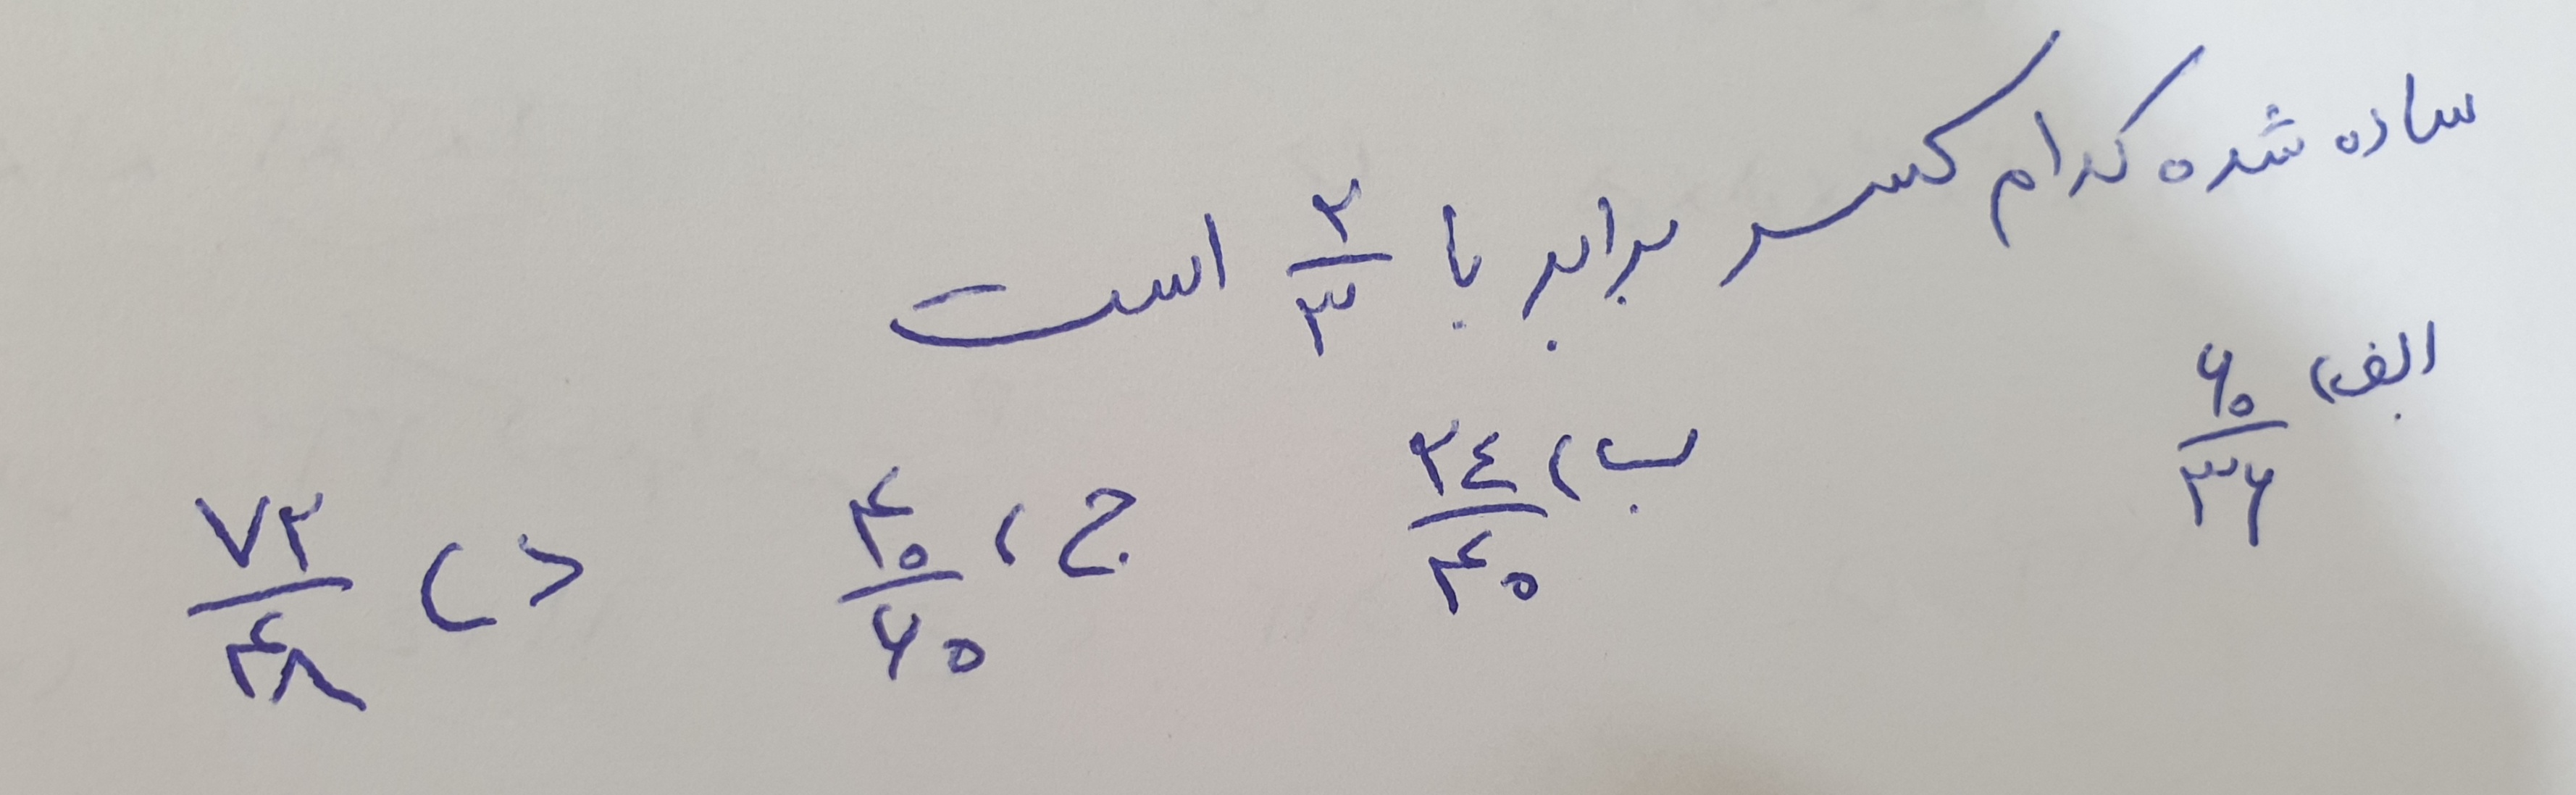 ساده شده کدام کسر برابر با ۲/۳ است
الف) ۶۰/۳۶ ب) ۲۴/۴۰ ج) ۴۰/۶۰ د) ۷۲/۴۸